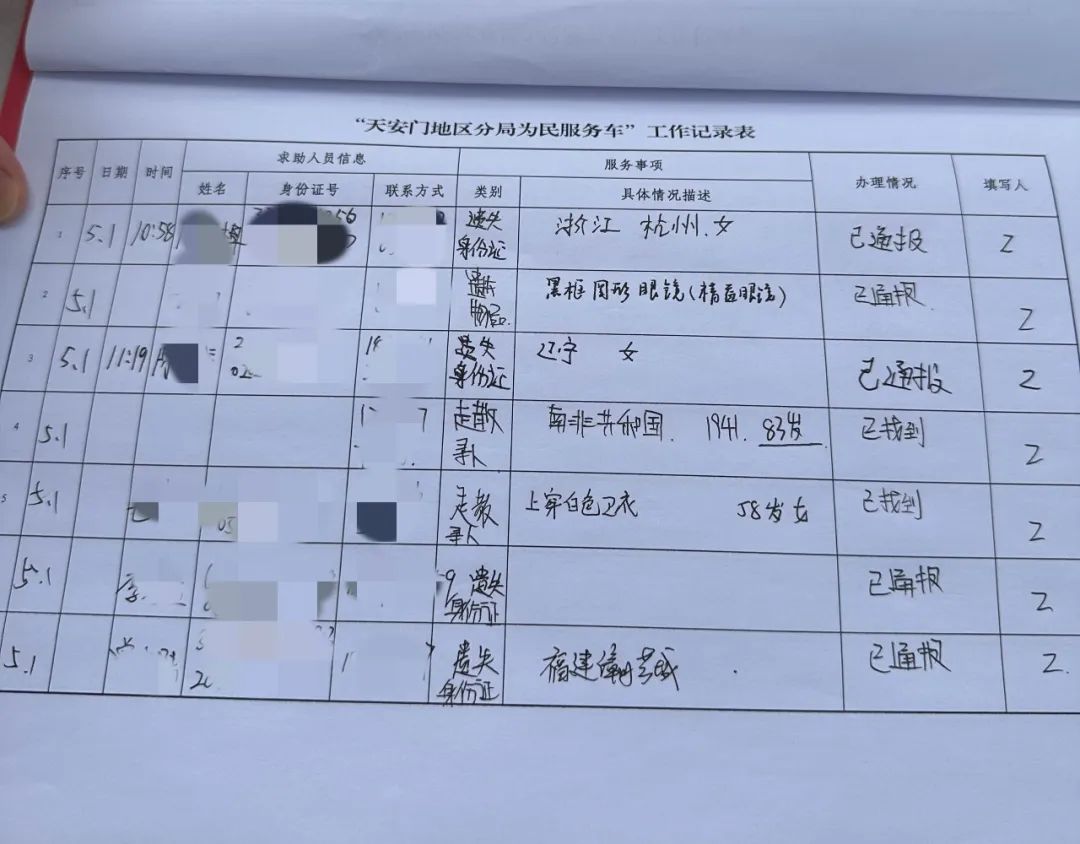 “天安门地区分局为民服务车”工作记录表
序号 日期 时间 求助人员信息 服务事项 办理情况 填写人
姓名 身份证号 联系方式 类别 具体情况描述
1 5.1 10:58 遗失 浙江 杭州.女 已通报 2
身份证
2 5.1 遗失 黑框圆形眼镜(精益眼镜) 已通报 2
物品
3 5.1 11:19 遗失 辽宁 女 已通报 2
身份证
4 5.1 走散 南非共和国. 1941. 83岁 已找到 2
寻人
5 5.1 走散 上穿白色卫衣 58岁 女 已找到 2
寻人
5.1 遗失 已通报 2
身份证
5.1 遗失 福建 已通报 2
身份证